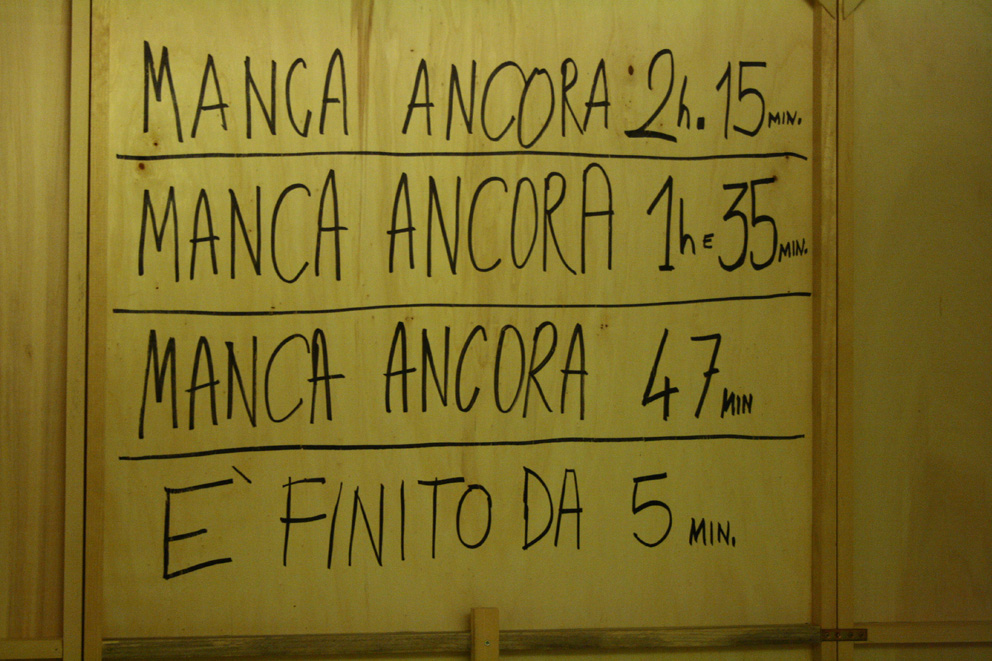 MANCA ANCORA 2h. 15 MIN.
MANCA ANCORA 1h E 35 MIN.
MANCA ANCORA 47 MIN
E` FINITO DA 5 MIN.